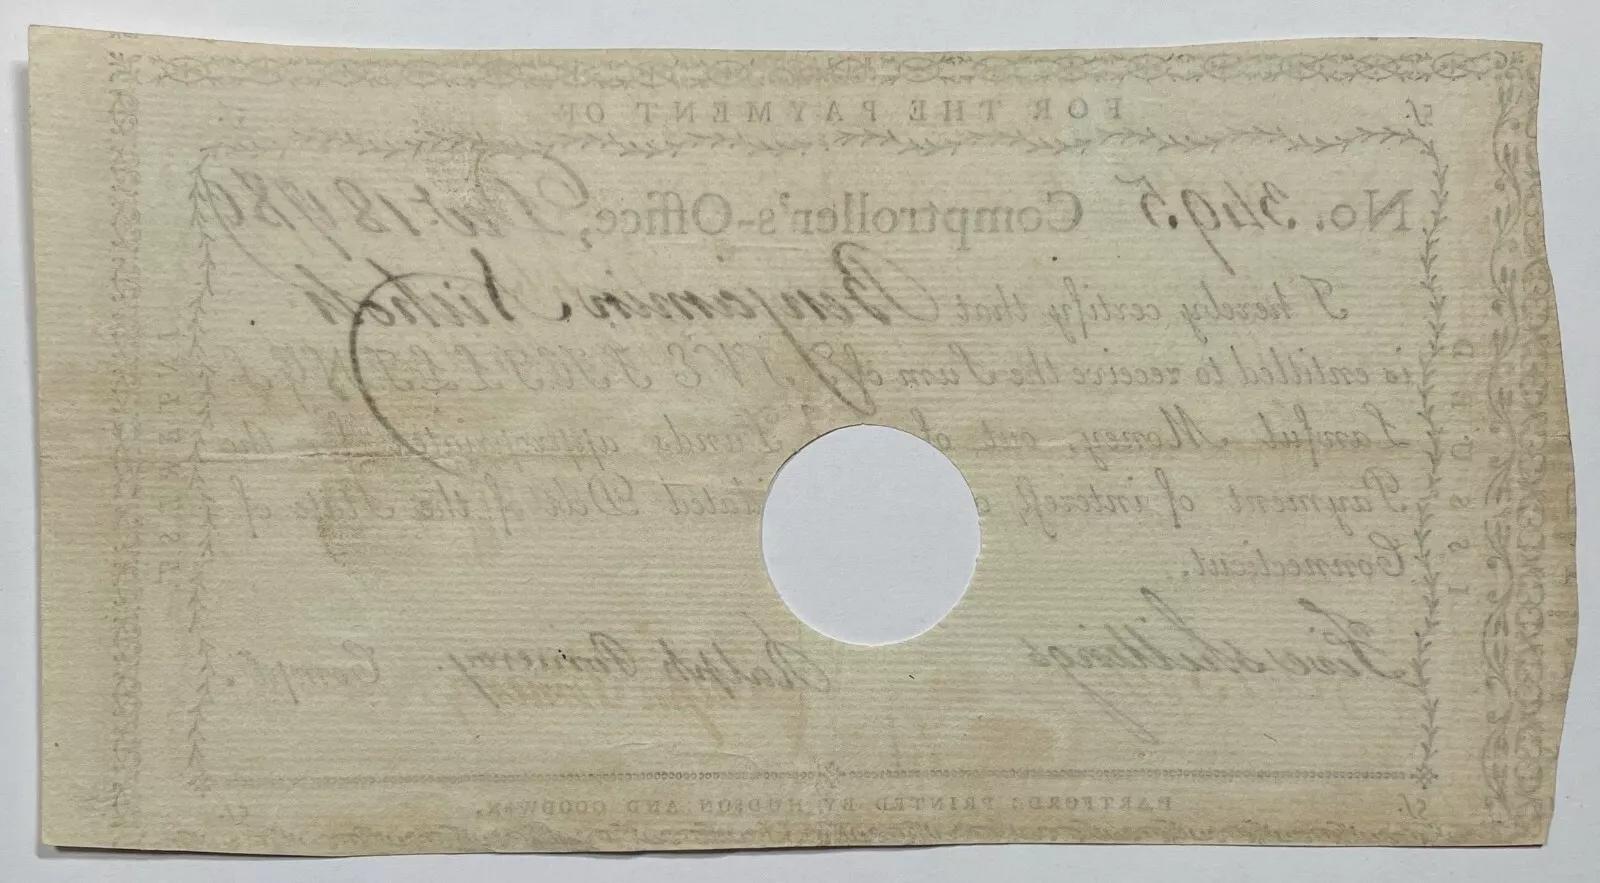 FOR THE PAYMENT OF
5/.
No. 3495 Comptroller's-Office, 1789
I hereby certify that Benjamin Nichols
is entitled to receive the Sum of FIVE SHILLINGS
Lawful Money, out of Funds appropriated the
Payment of interest, Debt of the State of
Connecticut.
Five Shillings Ralph Pomeroy. Compt.
5/. HARTFORD: PRINTED BY HUDSON AND GOODWIN. 5/.
ISSUED